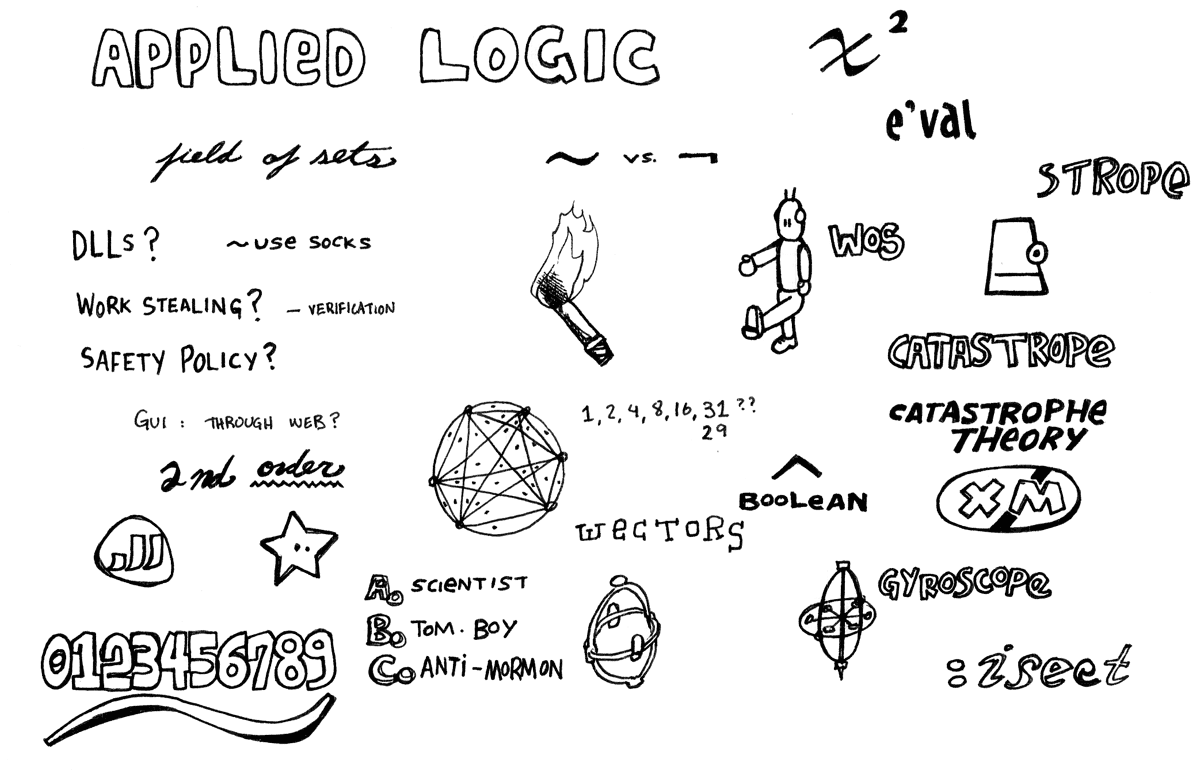 APPLIED LOGIC
x²
e'val
field of sets
~ vs. ¬
STROPE
DLLs?
~USE SOCKS
WOS
WORK STEALING?
– VERIFICATION
SAFETY POLICY?
CATASTROPE
GUI : THROUGH WEB?
1, 2, 4, 8, 16, 31 ??
29
CATASTROPHE
THEORY
2nd order
^
BOOLEAN
XM
WECTORS
A. SCIENTIST
B. TOM·BOY
C. ANTI-MORMON
GYROSCOPE
0123456789
:isect